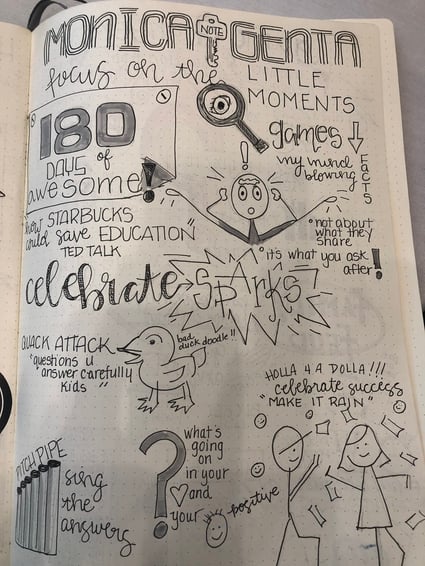 MONICA GENTA
NOTE
focus on the LITTLE
MOMENTS
180
DAYS of
awesome!
games
my mind
blowing
FACTS
!
"how STARBUCKS
could save EDUCATION"
TED TALK
* not about
what they
share
* it's what you ask
after!
celebrate Sparks
QUACK ATTACK
"questions u
answer carefully
kids"
bad
duck doodle!!
HOLLA 4 A DOLLA!!!
celebrate success
"MAKE IT RAIN"
PITCH PIPE
sing
the
answers
?
what's
going
on
in your
and
your
positive